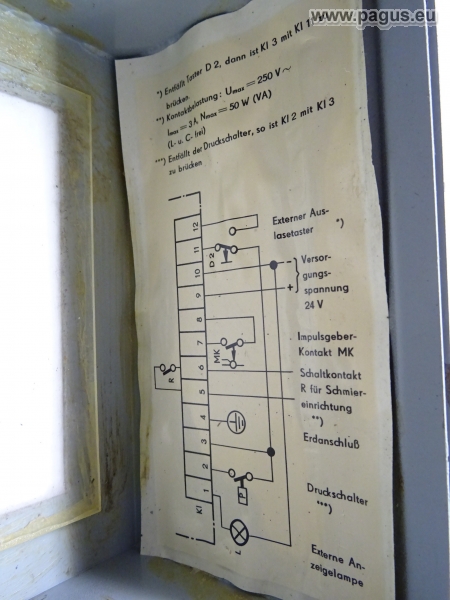 www.pagus.eu
*) Entfällt Taster D 2, dann ist Kl 3 mit Kl 1
brücken
**) Kontaktbelastung: Umax = 250 V ~
Imax = 3A, Nmax = 50 W (VA)
(L- u. C- frei)
***) Entfällt der Druckschalter, so ist Kl 2 mit Kl 3
zu brücken
12
11
10
9
8
7
6
5
4
3
2
1
Kl
D 2
MK
R
P
L
-
+
Externer Aus-
lösetaster *)
Versor-
gungs-
spannung
24 V
Impulsgeber-
Kontakt MK
Schaltkontakt
R für Schmier-
einrichtung
**)
Erdanschluß
Druckschalter
***)
Externe An-
zeigelampe